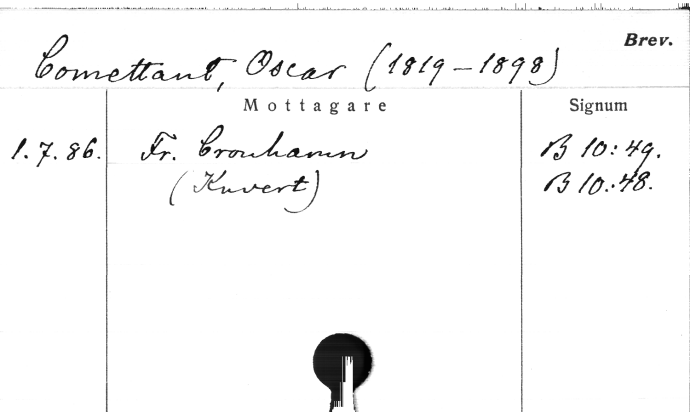 Brev.
Comettant, Oscar (1819-1898)
Mottagare Signum
1.7.86. Fr. Cronhamn B 10:49.
(Kuvert) B 10:48.